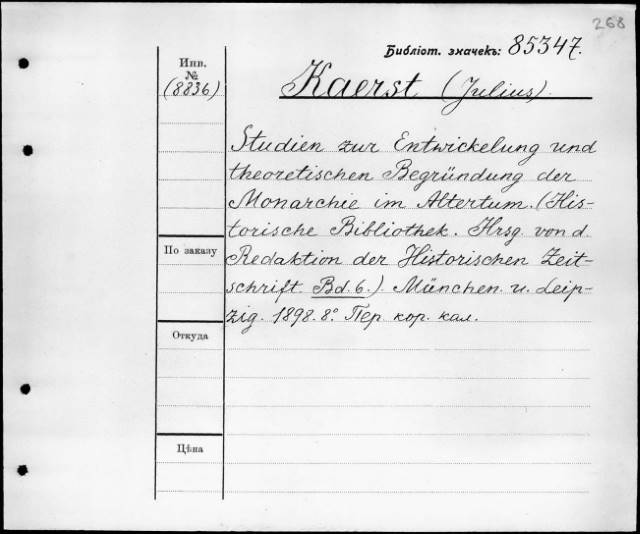 268
Библіот. значекъ: 85347.
Инв.
№
(8836)
Kaerst (Julius).
Studien zur Entwickelung und
theoretischen Begründung der
Monarchie im Altertum. (His-
torische Bibliothek. Hrsg. von d.
По заказу
Redaktion der Historischen Zeit-
schrift. Bd. 6.). München. u. Leip-
zig. 1898. 8°. Пер. кор. кал.
Откуда
Цѣна